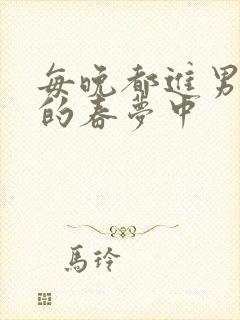 每晚都進男
的春夢中
馬玲